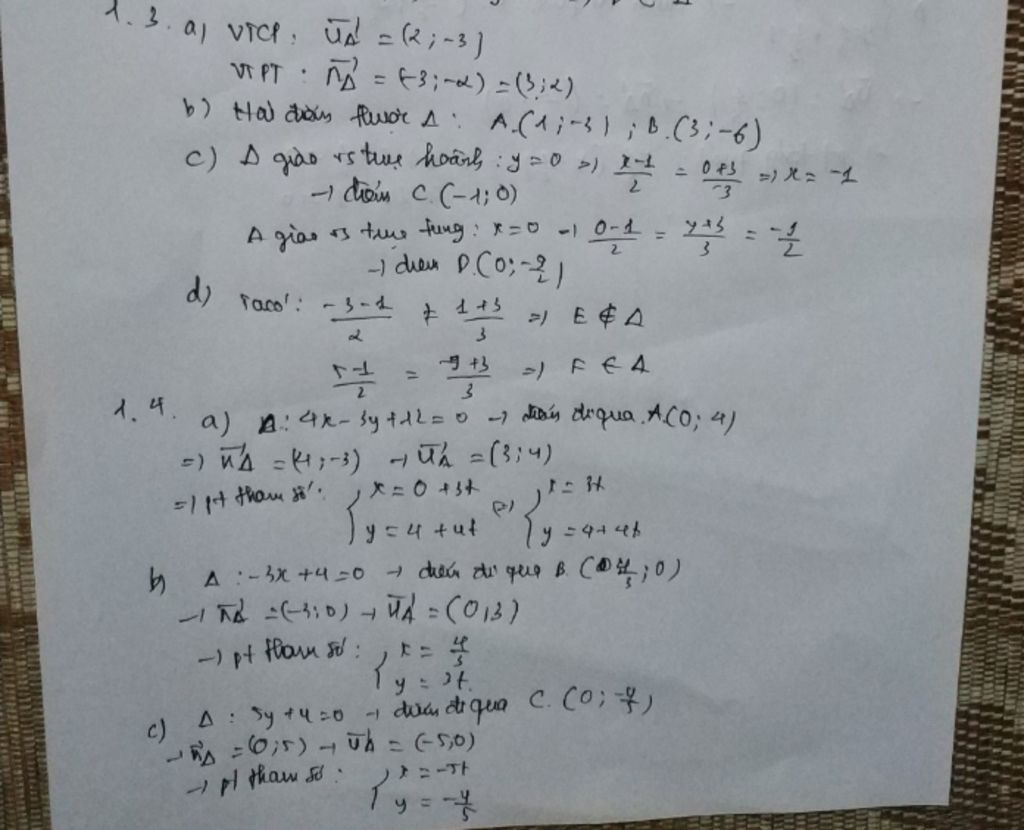 1.3. a) VTCP: u⃗Δ = (2; -3)
VTPT: n⃗Δ = (-3; -2) = (3; 2)
b) Hai điểm thuộc Δ: A.(1; -3); B.(3; -6)
c) Δ giao vs trục hoành: y = 0 => (x-1)/2 = (0+3)/-3 => x = -1
→ điểm C.(-1; 0)
Δ giao vs trục tung: x = 0 → (0-1)/2 = (y+3)/3 = -1/2
→ điểm D.(0; -9/2)
d) Ta có: (-3-1)/2 ≠ (1+3)/3 => E ∉ Δ
(5-1)/2 = (-9+3)/3 => F ∈ Δ
1.4. a) Δ: 4x - 3y + 12 = 0 → điểm đi qua A(0; 4)
=> n⃗Δ = (4; -3) → u⃗Δ = (3; 4)
=> pt tham số: { x = 0 + 3t y = 4 + 4t <=> { x = 3t y = 4 + 4t
b) Δ: -3x + 4 = 0 → điểm đi qua B.(4/3; 0)
→ n⃗Δ = (-3; 0) → u⃗Δ = (0; 3)
→ pt tham số: { x = 4/3 y = 3t.
c) Δ: 5y + 4 = 0 → điểm đi qua C.(0; -4/5)
→ n⃗Δ = (0; 5) → u⃗Δ = (-5; 0)
→ pt tham số: { x = -5t y = -4/5